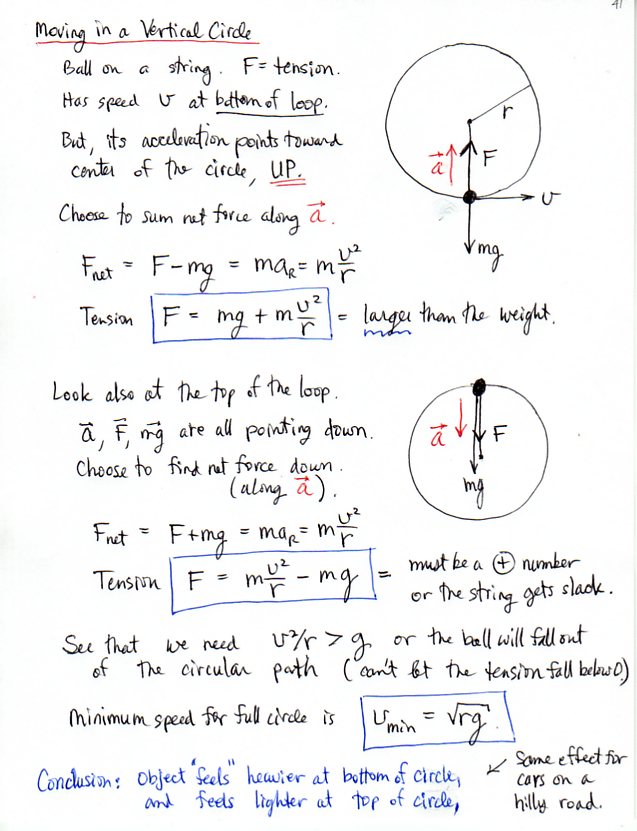 41
Moving in a Vertical Circle
Ball on a string. F = tension.
Has speed v at bottom of loop.
But, its acceleration points toward
center of the circle, UP.
Choose to sum net force along a⃗.
r
a⃗
F
v
mg
F_net = F - mg = ma_R = m v²/r
Tension F = mg + m v²/r = larger than the weight.
Look also at the top of the loop.
a⃗, F⃗, mg⃗ are all pointing down.
Choose to find net force down.
(along a⃗).
a⃗
F
mg
F_net = F + mg = ma_R = m v²/r
Tension F = m v²/r - mg = must be a ⊕ number
or the string gets slack.
See that we need v²/r > g or the ball will fall out
of the circular path (can't let the tension fall below 0.)
Minimum speed for full circle is v_min = √rg
Conclusion: Object "feels" heavier at bottom of circle,
and feels lighter at top of circle,
↙ Same effect for
cars on a
hilly road.